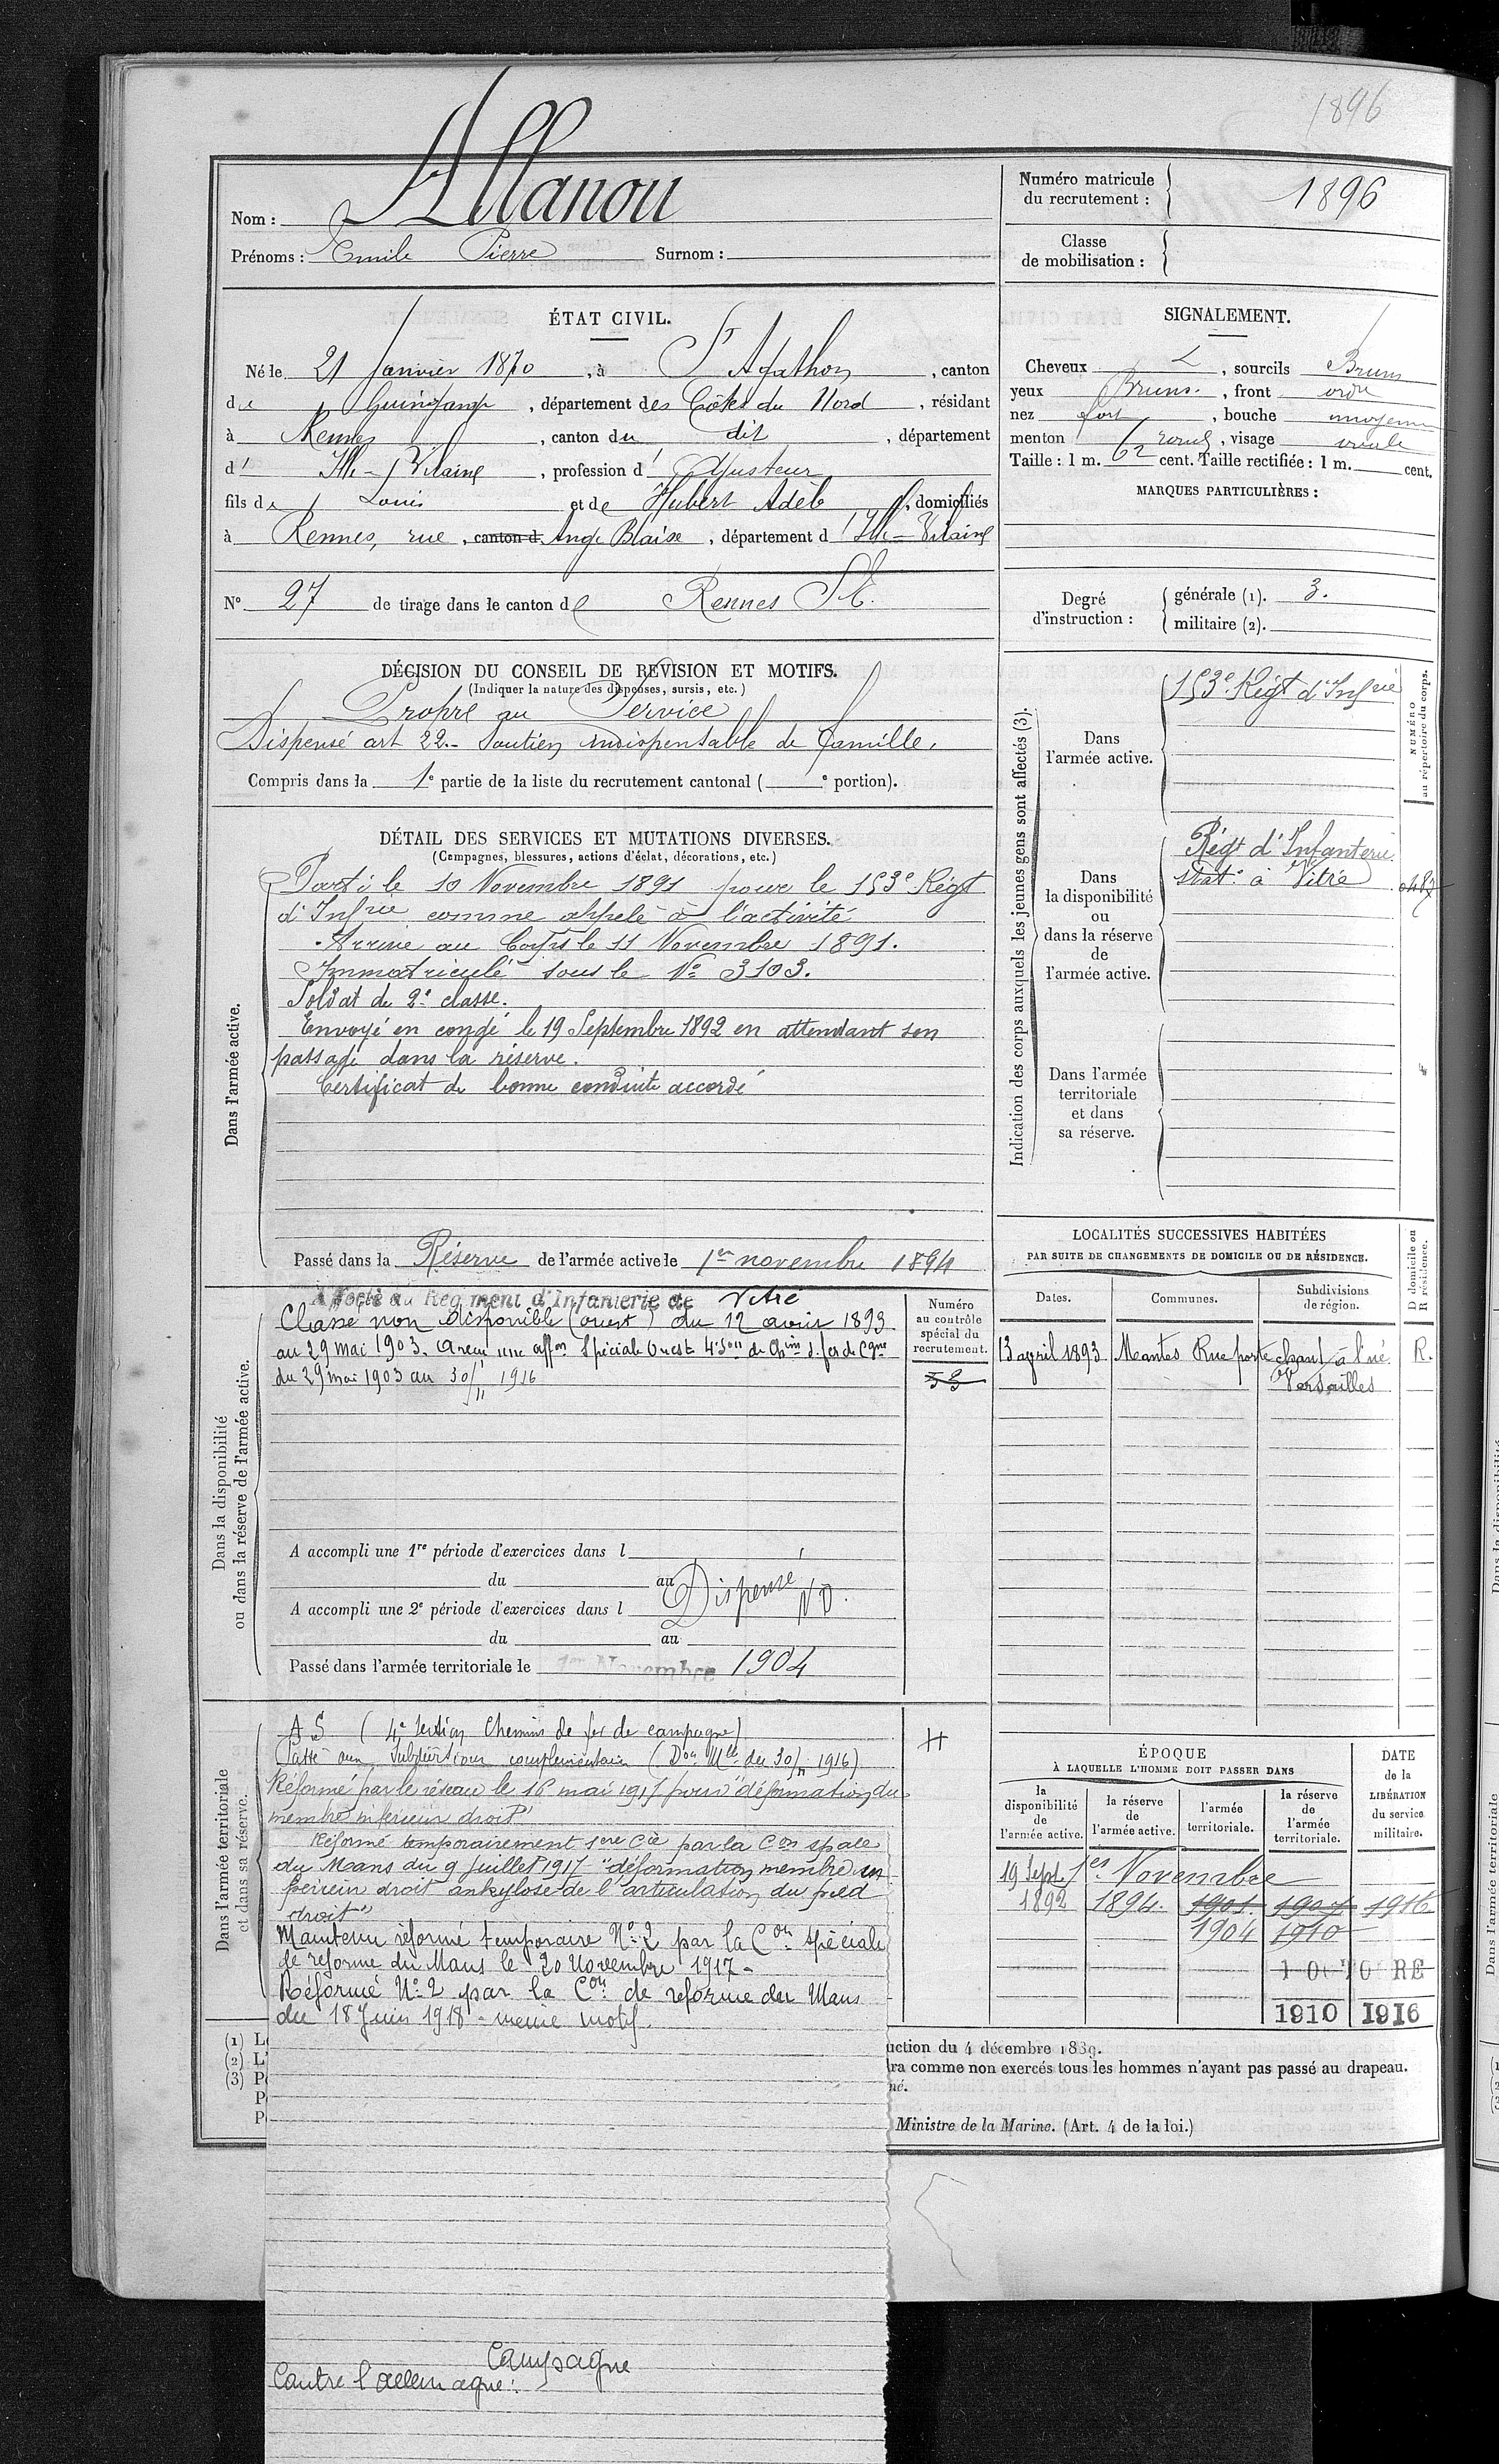 1896
Nom : Allanou
Prénoms : Emile Pierre Surnom :
Numéro matricule
du recrutement :
1896
Classe
de mobilisation :
ÉTAT CIVIL.
Né le 21 Janvier 1870, à St Agathon, canton
de Guingamp, département des Côtes du Nord, résidant
à Rennes, canton du dit, département
d'Ille-Vilaine, profession d'Ajusteur
fils de Louis et de Hubert Adèle, domiciliés
à Rennes, rue, canton d. Ange Blaise, département d'Ille-Vilaine
N° 27 de tirage dans le canton de Rennes S.E.
SIGNALEMENT.
Cheveux, sourcils Bruns
yeux Bruns., front ordre
nez fort, bouche moyenne
menton rond, visage ovale
Taille : 1 m. 62 cent. Taille rectifiée : 1 m. cent.
MARQUES PARTICULIÈRES :
Degré
d'instruction :
générale (1). 3.
militaire (2).
DÉCISION DU CONSEIL DE REVISION ET MOTIFS.
(Indiquer la nature des dispenses, sursis, etc.)
Propre au Service
Dispensé art 22.- Soutien indispensable de famille.
Compris dans la 1e partie de la liste du recrutement cantonal ( e portion).
DÉTAIL DES SERVICES ET MUTATIONS DIVERSES.
(Campagnes, blessures, actions d'éclat, décorations, etc.)
Dans l'armée active.
Parti le 10 Novembre 1891 pour le 153e Régt
d'Infrie comme appelé à l'activité
Arrivé au Corps le 11 Novembre 1891.
Immatriculé sous le N° 3103.
Soldat de 2e classe.
Envoyé en congé le 19 Septembre 1892 en attendant son
passage dans la réserve.
Certificat de bonne conduite accordé
Passé dans la Réserve de l'armée active le 1er novembre 1894
Indication des corps auxquels les jeunes gens sont affectés (3).
NUMÉRO
au répertoire du corps.
Dans
l'armée active.
153e Régt d'Infrie
Dans
la disponibilité
ou
dans la réserve
de
l'armée active.
Régt d'Infanterie
stat. à Vitré
Dans l'armée
territoriale
et dans
sa réserve.
Dans la disponibilité
ou dans la réserve de l'armée active.
Affecté au Régiment d'Infanterie de Vitré
Classé non disponible (ouest) du 12 avril 1893
au 29 mai 1903. A reçu une affon Spéciale Ouest 4e Son de Chins d. fer de Cgne
du 29 mai 1903 au 30/11 1916
Numéro
au contrôle
spécial du
recrutement.
53
A accompli une 1re période d'exercices dans l
du au
Dispensé
N D.
A accompli une 2e période d'exercices dans l
du au
Passé dans l'armée territoriale le 1er Novembre 1904
LOCALITÉS SUCCESSIVES HABITÉES
PAR SUITE DE CHANGEMENTS DE DOMICILE OU DE RÉSIDENCE.
D domicile ou
R résidence.
Dates.
Communes.
Subdivisions
de région.
13 avril 1893 Mantes Rue porte chant à l'ué R.
Versailles
Dans l'armée territoriale
et dans sa réserve.
A S ( 4e Section Chemins de fer de campagne)
Passé aux Subdivisions complémentaires (Don Mlle du 30/11 1916)
Réformé par le réseau le 16 mai 1917 pour "déformation du
membre inférieur droit"
Réformé temporairement 1ere Cie par la Con spale
du Mans du 9 Juillet 1917 "déformation membre in
férieur droit ankylose de l'articulation du pied
droit"
Maintenu réformé temporaire N° 2 par la Con spéciale
de réforme du Mans le 20 Novembre 1917 -
Réformé N° 2 par la Con de réforme du Mans
du 18 Juin 1918 - même motif.
ÉPOQUE
À LAQUELLE L'HOMME DOIT PASSER DANS
DATE
de la
LIBÉRATION
du service
militaire.
la
disponibilité
de
l'armée active.
la réserve
de
l'armée active.
l'armée
territoriale.
la réserve
de
l'armée
territoriale.
19 Sept. 1er Novembre
1892 1894 1901 1907 1916
1904 1910
1 OCTOBRE
1910 1916
(1) L
(2) L'
(3) P
P
P
uction du 4 décembre 1889.
ra comme non exercés tous les hommes n'ayant pas passé au drapeau.
né.
Ministre de la Marine. (Art. 4 de la loi.)
Campagne
Contre l'allemagne :